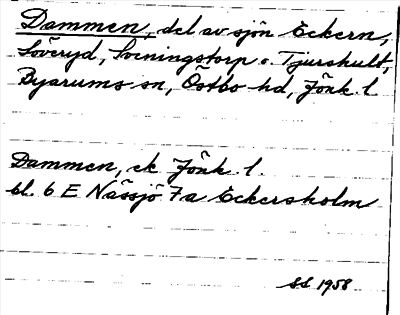 Dammen, del av sjön Eckern,
Löveryd, Sveningstorp o. Tjurshult,
Byarums sn, Östbo hd, Jönk. l.
Dammen, ek Jönk. l.
bl. 6 E Nässjö 7a Eckersholm
SS 1958